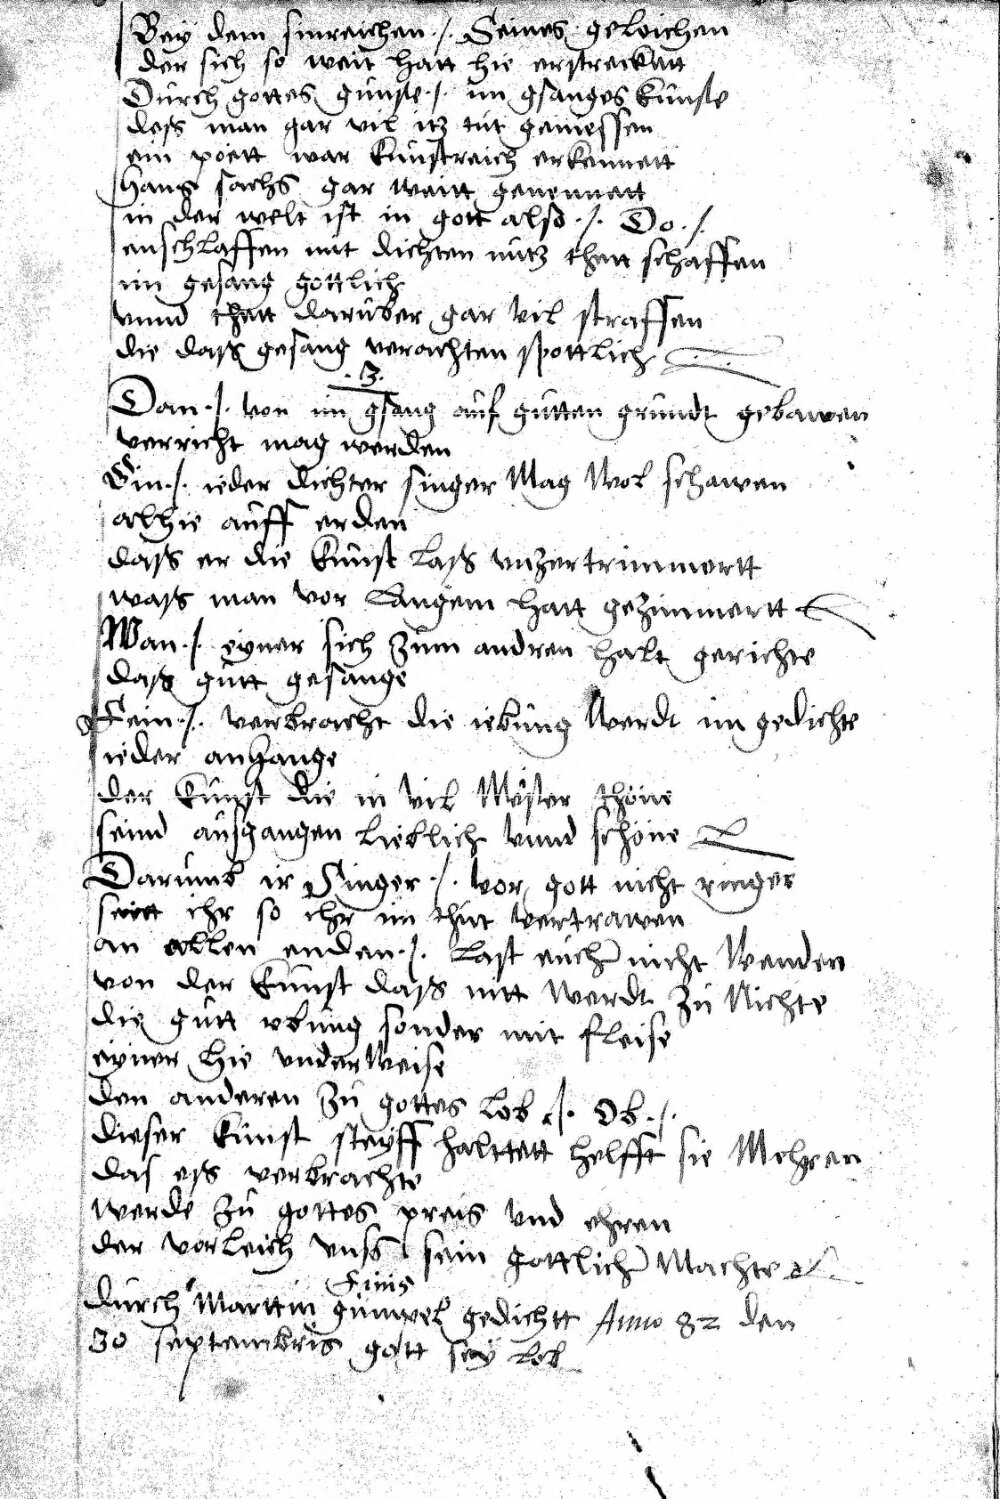 Beÿ dem sinreichen ·/· Seines geleichen
der sich so weit hatt hie erstreckett
Durch gottes gunste ·/· im gsanges kunste
dess man gar vil itz tut geniessen
ein poett war kunstreich erkennett
hans sachs gar weitt genennett
in der welt ist in gott also ·/· Do ·/·
enschlaffen mit dichten nutz thett schaffen
im gesang gottlich
vnnd thett daruber gar vil straffen
die dass gesang verachten spottlich
·3·
Dan ·/· von im gsang auf gutten grundt gebawen
verricht mag werden
Ein ·/· ieder dichter singer Mag Wol schawen
alhie auff erden
dass er die kunst lass vnzertrimmertt
wass man vor Langem hatt gezimmertt
Wan ·/· eyner sich zum andren halt gerichte
dass gutt gesange
Fein ·/· verbracht die iebung Werdt im gedichte
ieder anhange
der kunst die in vil Meister thöne
seind ausgangen lieblich vnnd schöne
Darumb ir Singer ·/· vor gott nicht ringer
seitt ihr so ihr im thut vertrawen
an allen enden ·/· Last euch nicht Wenden
von der kunst dass nitt Werdt zu Nichte
die gutt vbung sonder mit fleise
eyner hie vnderWeise
den anderen zu gottes lob ·/· Ob ·/·
dieser kunst steyff halttett helfft sie Mehren
das ess verbrachte
werde zu gottes preis vnd ehren
der vorleich vnss sein gottlich Machte
Finis
durch Marttin gumpel gedichtt Anno 82 den
30 septembris gott seÿ lob